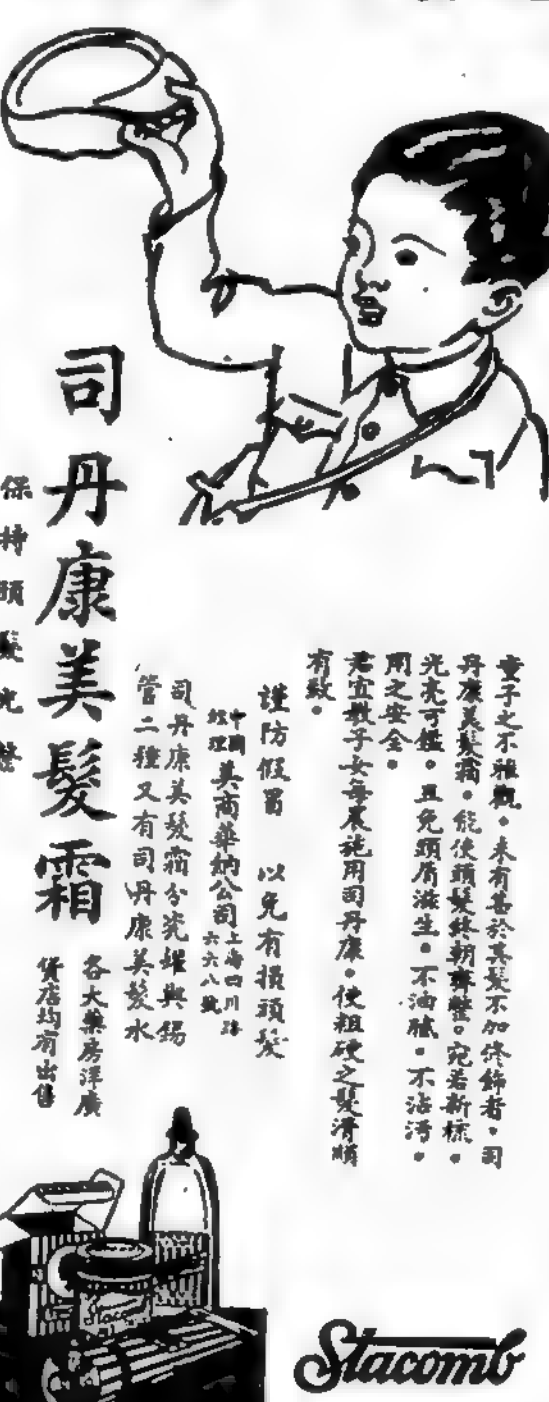 童子之不雅觀。未有甚於其髮不加修飾者。司
丹康美髮霜。能使頭髮終朝齊整。宛若新梳。
光亮可鑑。且免頭屑滋生。不油膩。不沾污。
用之安全。
君宜教子女每晨施用司丹康。使粗硬之髮滑順
有緻。
謹防假冒 以免有損頭髮
中國經理 美商華納公司 上海四川路六六八號
司丹康美髮霜分瓷罐與錫
管二種又有司丹康美髮水
各大藥房洋廣
貨店均有出售
司丹康美髮霜
保持頭髮光整
Stacomb